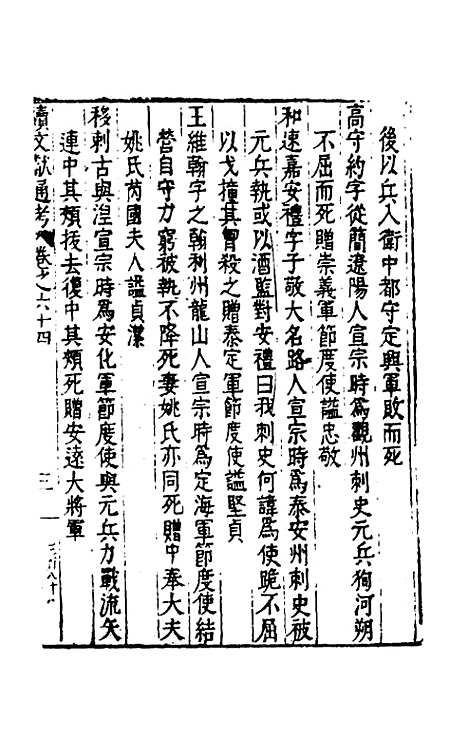 後以兵入衛中都守定興軍敗而死
高守約字從簡遼陽人宣宗時爲觀州刺史元兵狥河朔
不屈而死贈崇義軍節度使謚忠敬
和速嘉安禮字子敬大名路人宣宗時爲泰安州刺史被
元兵執或以酒監對安禮曰我刺史何諱爲使跪不屈
以戈撞其胷殺之贈泰定軍節度使謚堅貞
王維翰字之翰利州龍山人宣宗時爲定海軍節度使結
營自守力窮被執不降死妻姚氏亦同死贈中奉大夫
姚氏芮國夫人謚貞潔
移剌古與湼宣宗時爲安化軍節度使與元兵力戰流矢
連中其頰拔去復中其頰死贈安遠大將軍
續文獻通考 卷之六十四 三